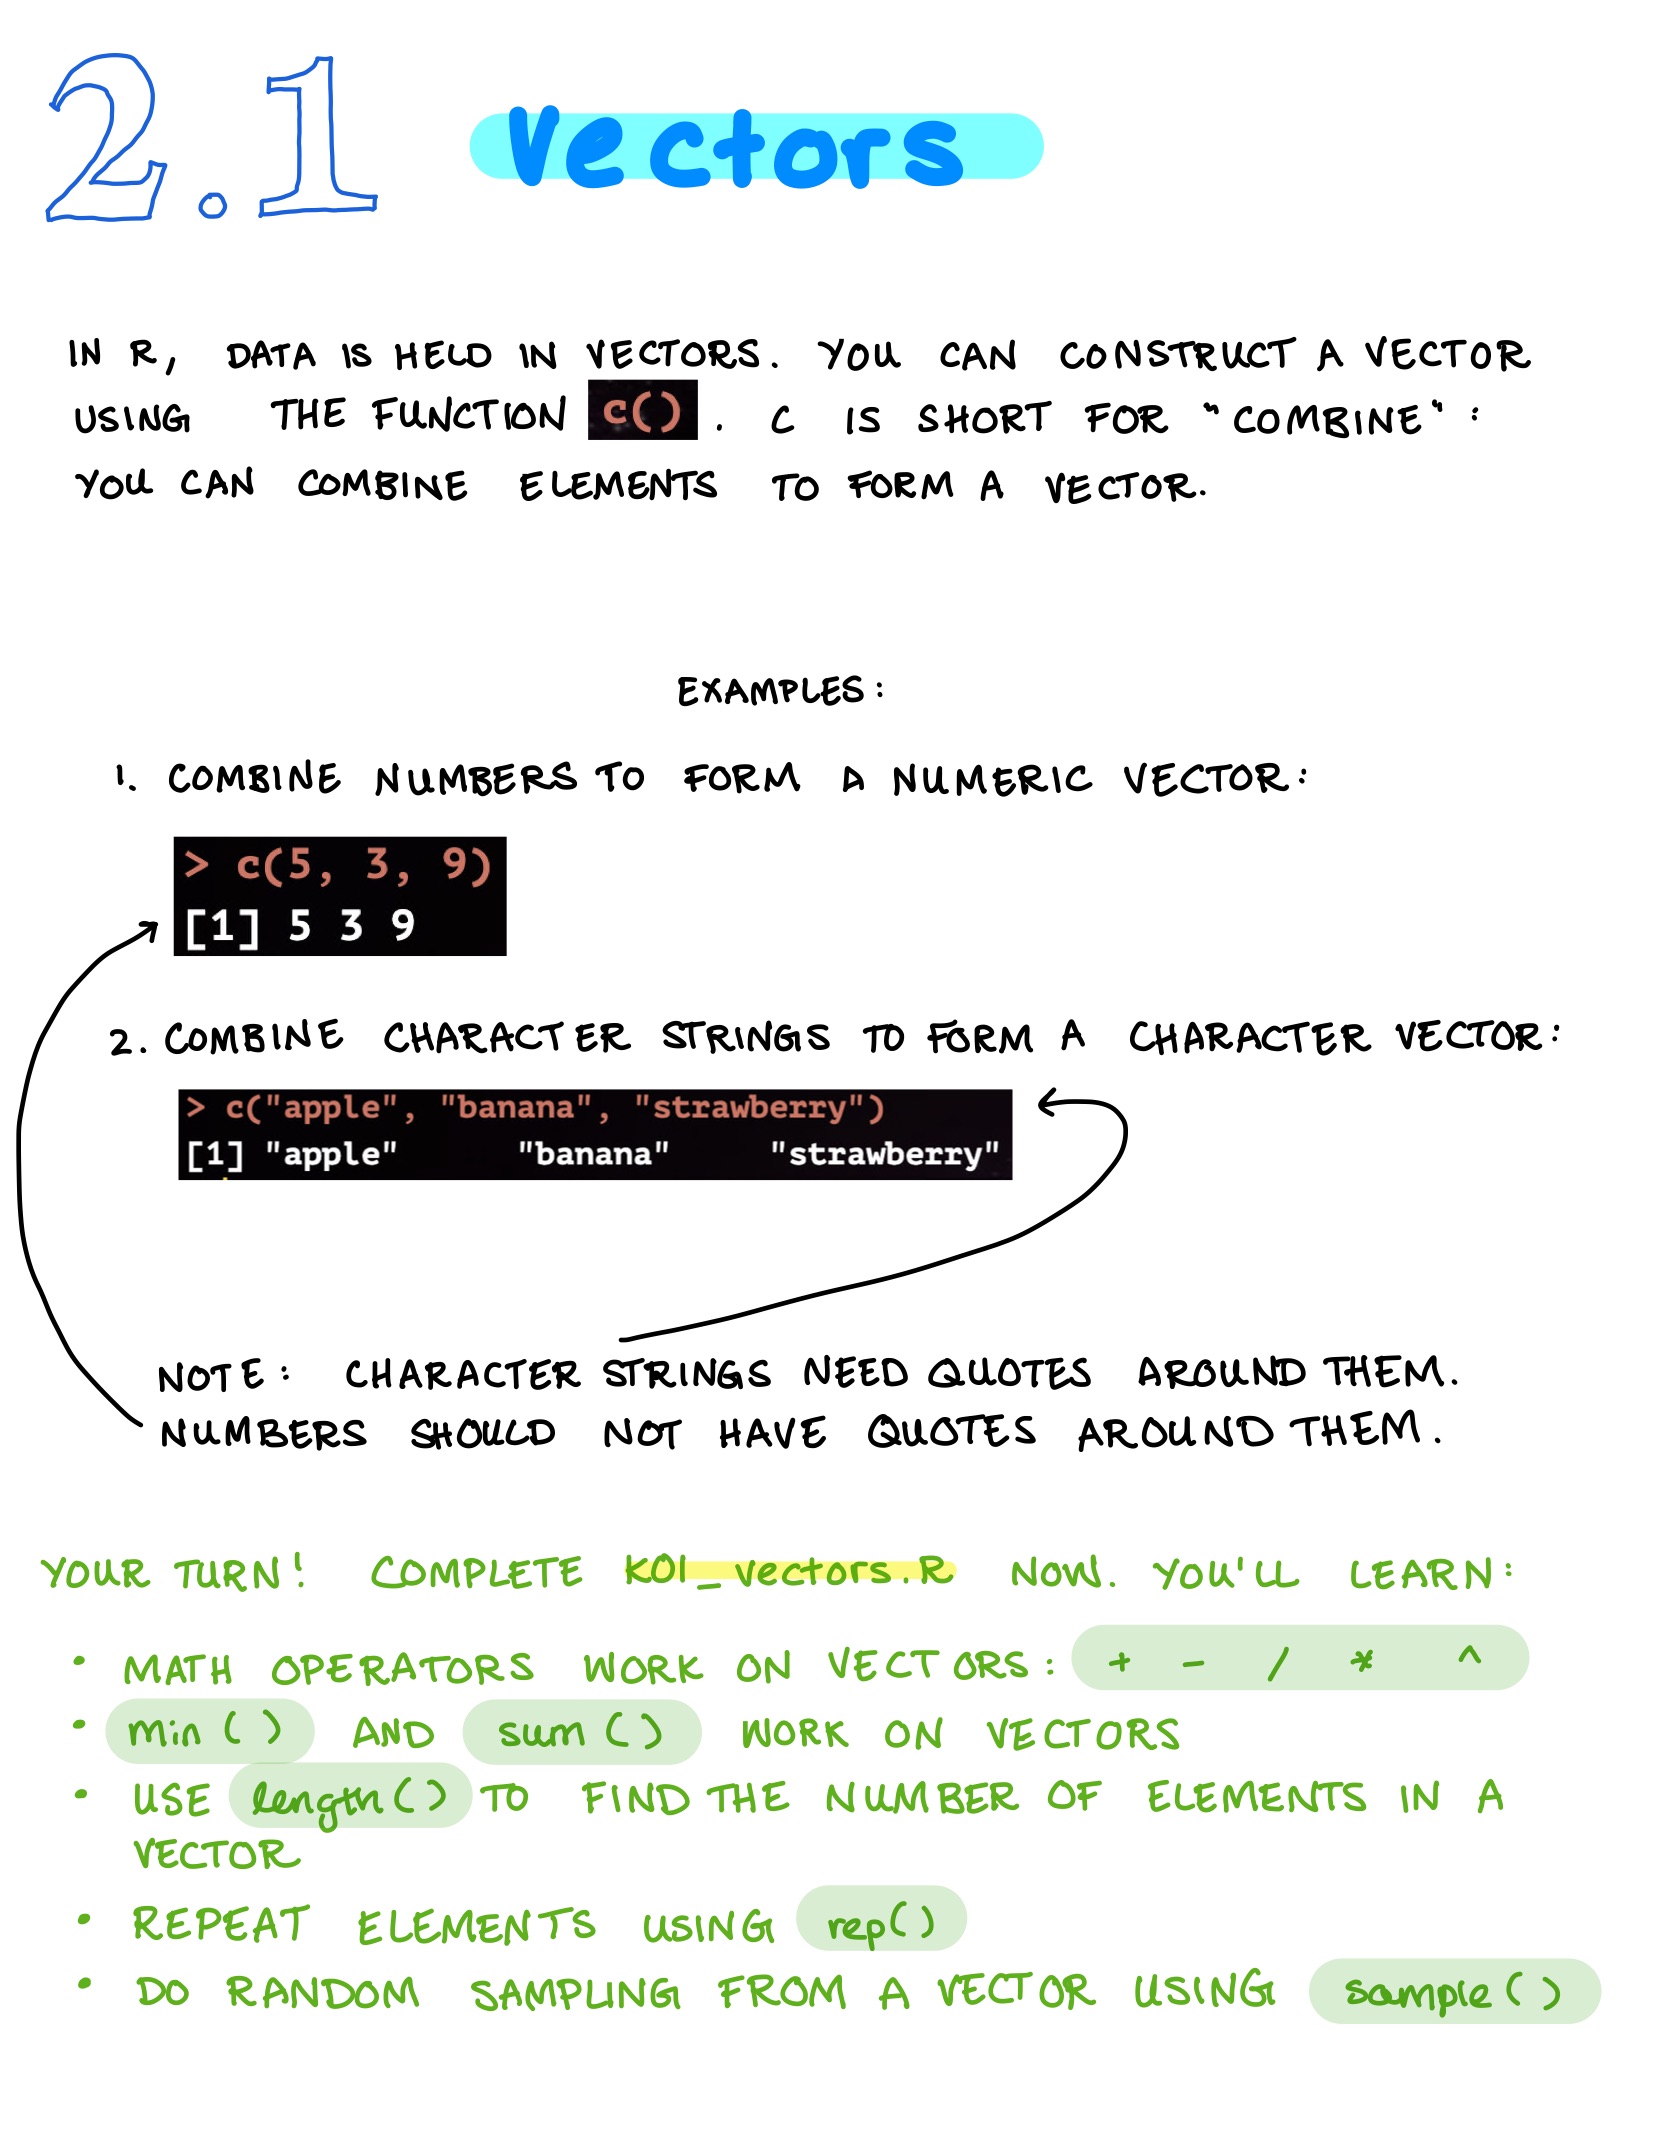 2.1 Vectors
IN R, DATA IS HELD IN VECTORS. YOU CAN CONSTRUCT A VECTOR
USING THE FUNCTION c(). C IS SHORT FOR "COMBINE":
YOU CAN COMBINE ELEMENTS TO FORM A VECTOR.
EXAMPLES:
1. COMBINE NUMBERS TO FORM A NUMERIC VECTOR:
> c(5, 3, 9)
[1] 5 3 9
2. COMBINE CHARACTER STRINGS TO FORM A CHARACTER VECTOR:
> c("apple", "banana", "strawberry")
[1] "apple" "banana" "strawberry"
NOTE: CHARACTER STRINGS NEED QUOTES AROUND THEM.
NUMBERS SHOULD NOT HAVE QUOTES AROUND THEM.
YOUR TURN! COMPLETE K01_vectors.R NOW. YOU'LL LEARN:
• MATH OPERATORS WORK ON VECTORS: + - / * ^
• min() AND sum() WORK ON VECTORS
• USE length() TO FIND THE NUMBER OF ELEMENTS IN A
VECTOR
• REPEAT ELEMENTS USING rep()
• DO RANDOM SAMPLING FROM A VECTOR USING sample()